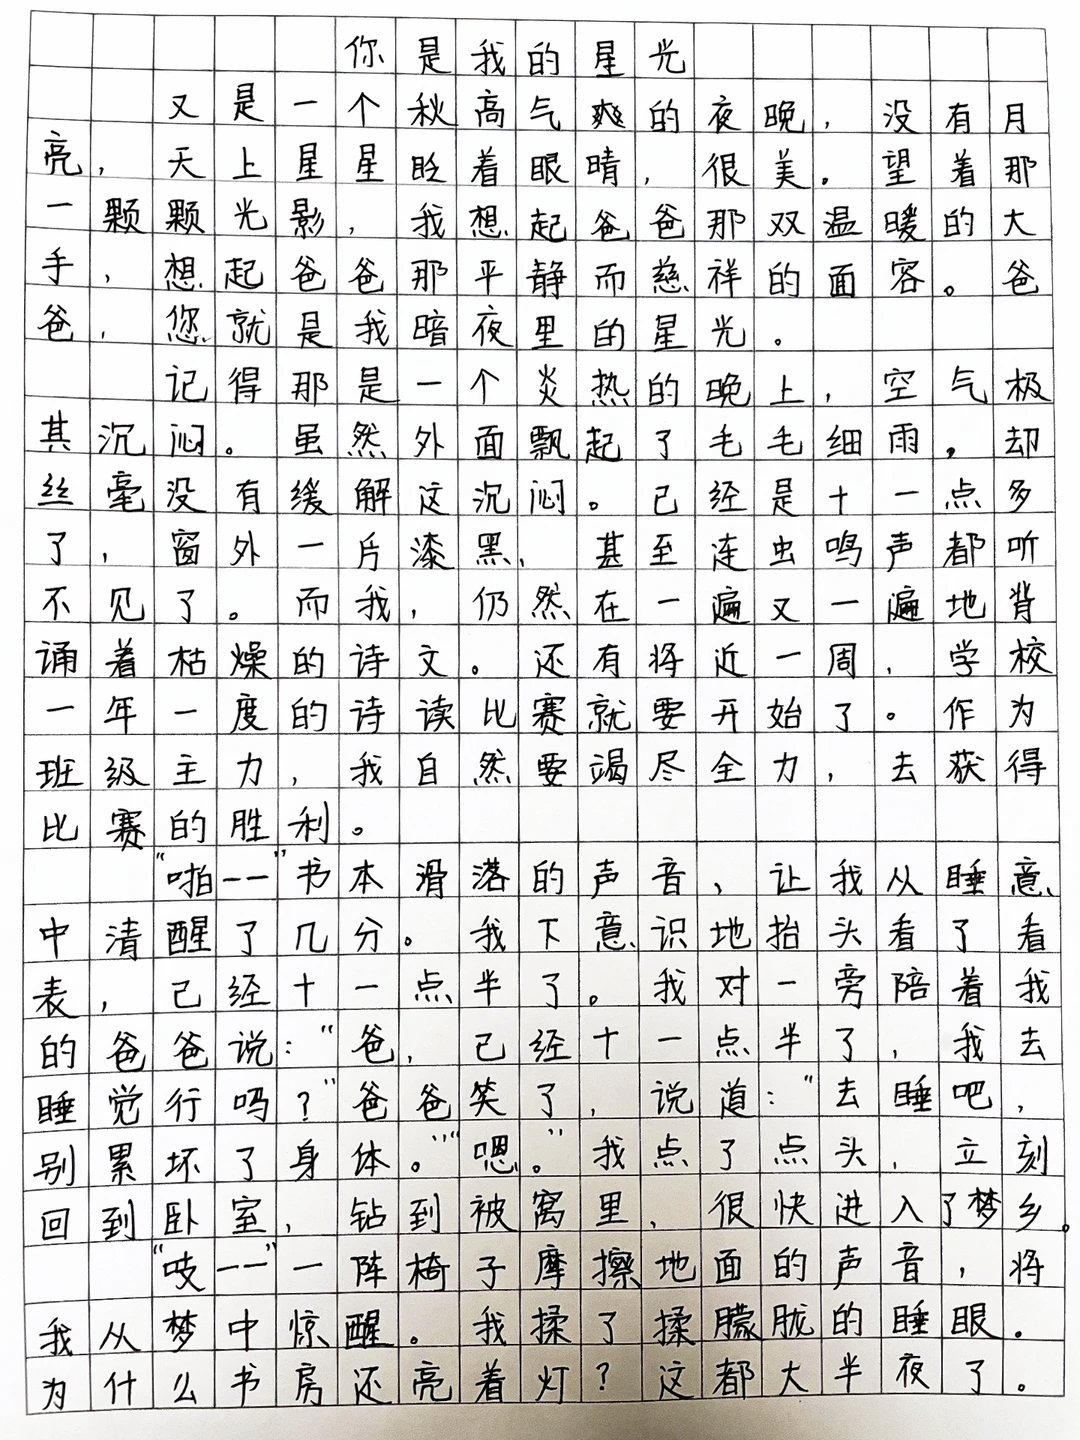 你是我的星光
又是一个秋高气爽的夜晚，没有月
亮，天上星星眨着眼睛，很美。望着那
一颗颗光影，我想起爸爸那双温暖的大
手，想起爸爸那平静而慈祥的面容。爸
爸，您就是我暗夜里的星光。
记得那是一个炎热的晚上，空气极
其沉闷。虽然外面飘起了毛毛细雨，却
丝毫没有缓解这沉闷。已经是十一点多
了，窗外一片漆黑，甚至连虫鸣声都听
不见了。而我，仍然在一遍又一遍地背
诵着枯燥的诗文。还有将近一周，学校
一年一度的诗读比赛就要开始了。作为
班级主力，我自然要竭尽全力，去获得
比赛的胜利。
“啪——”书本滑落的声音，让我从睡意
中清醒了几分。我下意识地抬头看了看
表，已经十一点半了。我对一旁陪着我
的爸爸说：“爸，已经十一点半了，我去
睡觉行吗？”爸爸笑了，说道：“去睡吧，
别累坏了身体。”“嗯。”我点了点头，立刻
回到卧室，钻到被窝里，很快进入了梦乡。
“吱——”一阵椅子摩擦地面的声音，将
我从梦中惊醒。我揉了揉朦胧的睡眼。
为什么书房还亮着灯？这都大半夜了。